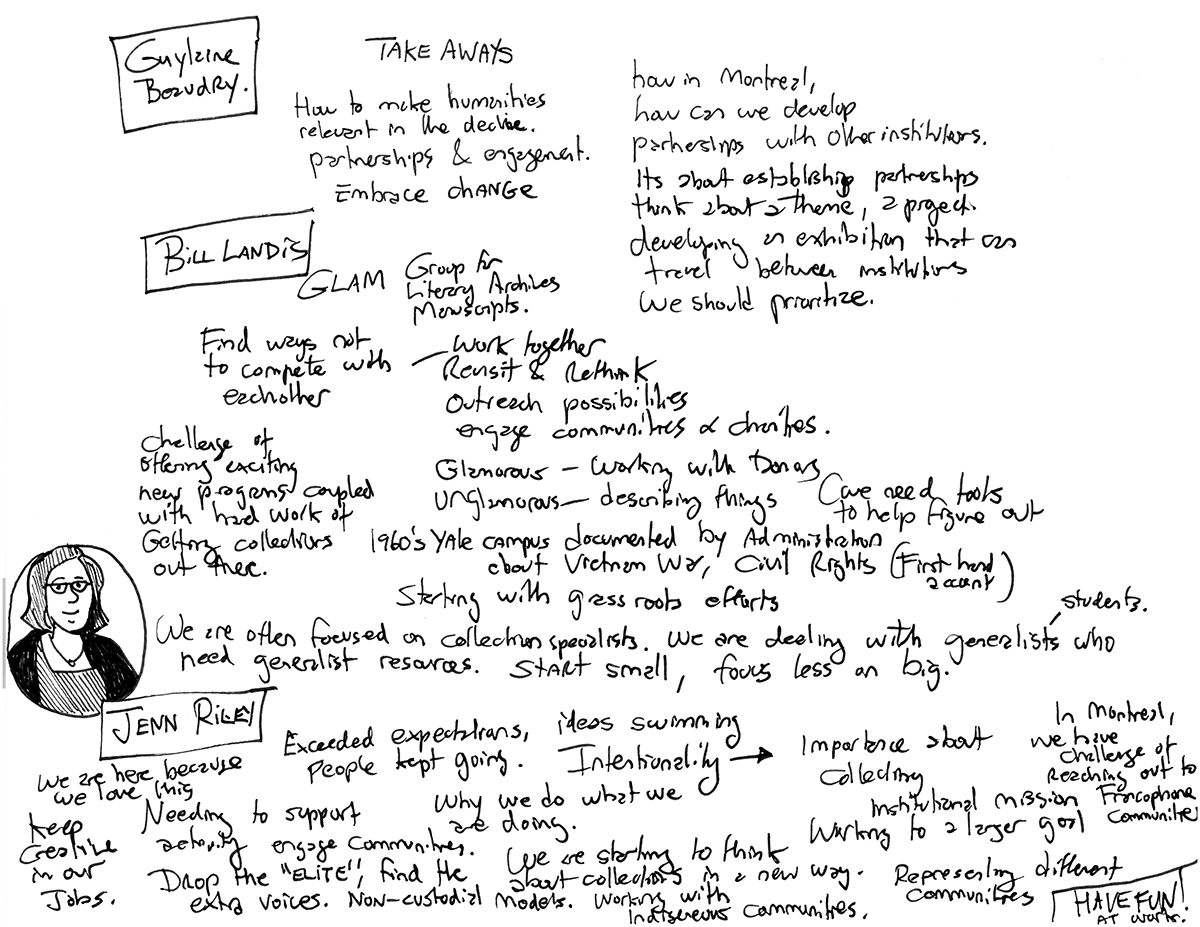 Guylaine
Beaudry.
TAKE AWAYS
How to make humanities
relevant in the decline.
partnerships & engagement.
Embrace chANGE
how in Montreal,
how can we develop
partnerships with other institutions.
Its about establishing partnerships
think about a theme, a project.
developing an exhibition that can
travel between institutions
We should prioritize.
BILL LANDIS
GLAM
Group for
Literary Archives
Manuscripts.
Find ways not
to compete with
eachother
Work together
Revisit & Rethink
Outreach possibilities
engage communities &
challenge of
offering exciting
new programs coupled
with hard work of
Getting collections
out there.
Glamorous – Working with Donors
UNGlamorous – describing things
(we need tools
to help figure out
1960's YALE campus documented by Administration
about Vietnam War, Civil Rights (First hand
account)
Starting with grass roots efforts
students.
We are often focused on collection specialists. We are dealing with generalists who
need generalist resources. START small, focus less on big.
JENN RILEY
We are here because
we love this
Keep
creative
in our
Jobs.
Exceeded expectations,
People kept going.
ideas swimming
Intentionality →
Importance about
collecting
In Montreal,
we have
challenge of
Reaching out to
Francophone
Communities
Institutional mission
Working to a larger goal
Needing to support
activity engage communities.
Why we do what we
are doing.
Drop the "ELITE", find the
extra voices. Non-custodial models.
We are starting to think
about collections in a new way.
Working with
Indigenous communities.
Representing different
Communities
HAVE FUN!
AT WORK!